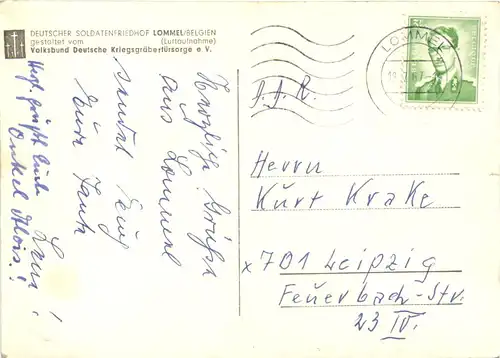 DEUTSCHER SOLDATENFRIEDHOF LOMMEL/BELGIEN
gestaltet vom (Luftaufnahme)
Volksbund Deutsche Kriegsgräberfürsorge e. V.
Herzliche Grüße
aus Lommel
sendet Euch
Eure Tante
Leni!
Herzl. grüßt Euch
Onkel Alois!
LOMMEL
Herrn
Kurt Krake
x 701 Leipzig
Feuerbach-Str.
23 IV.